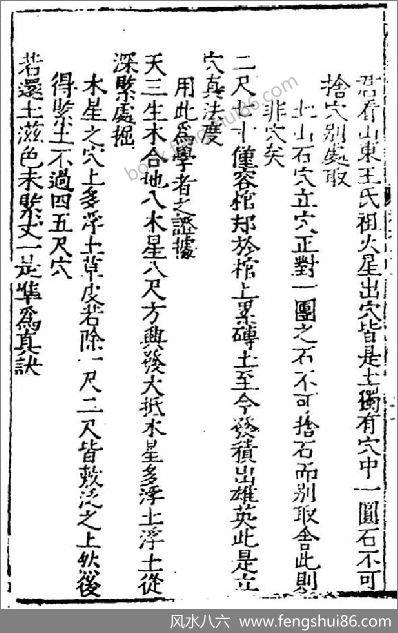 君看山東王氏祖火星出穴皆是土獨有穴中一圓石不可
捨穴别處取
此山石穴立穴正對一團之石不可捨石而别取舍此則
非穴矣
二尺七寸僅容棺却於棺上累磚土至今發積出雄英此是立
穴真法度
用此為學者之證據
天三生木合地八木星八尺方興發大抵木星多浮土浮土從
深緊處掘
木星之穴上多浮土草皮若除一尺二尺皆
泛之土然後
得緊土不過四五尺穴
若還土滋色未緊丈一是準為真訣
风水八六 www.fengshui86.com